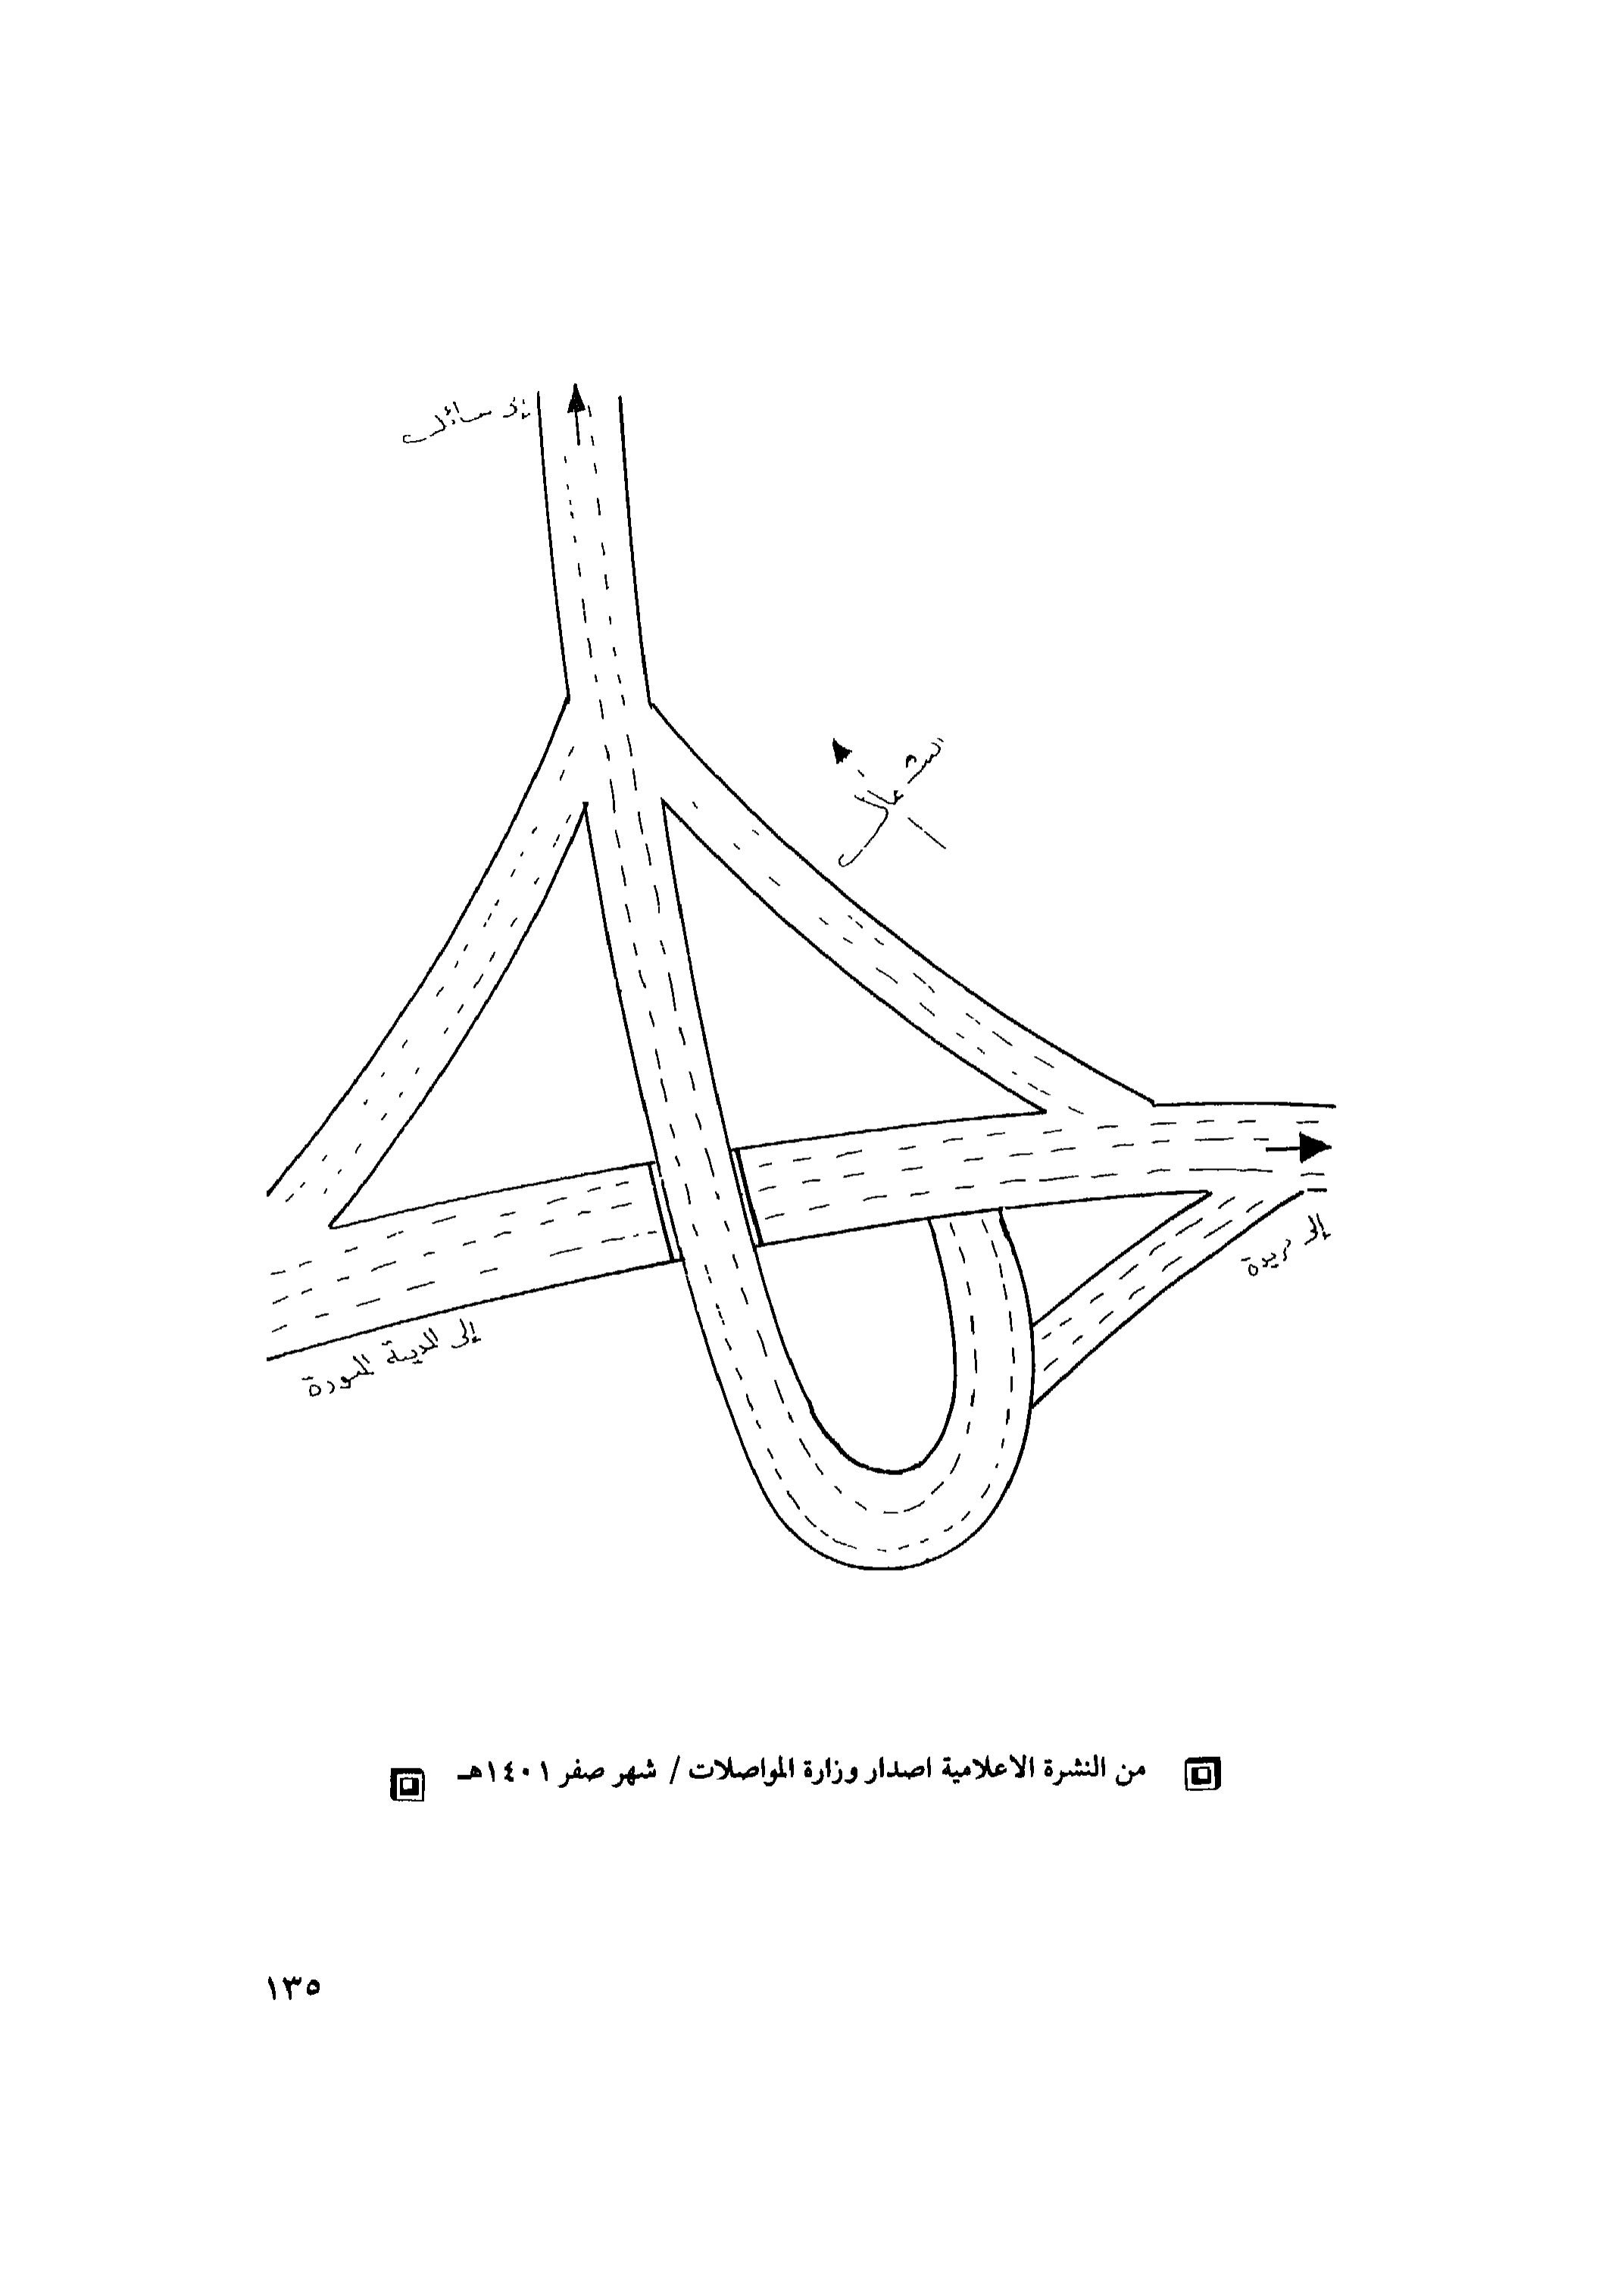 إلى حائل
الشمال
إلى بريدة
إلى المدينة المنورة
من النشرة الاعلامية اصدار وزارة المواصلات / شهر صفر ١٤٠١هـ
١٣٥